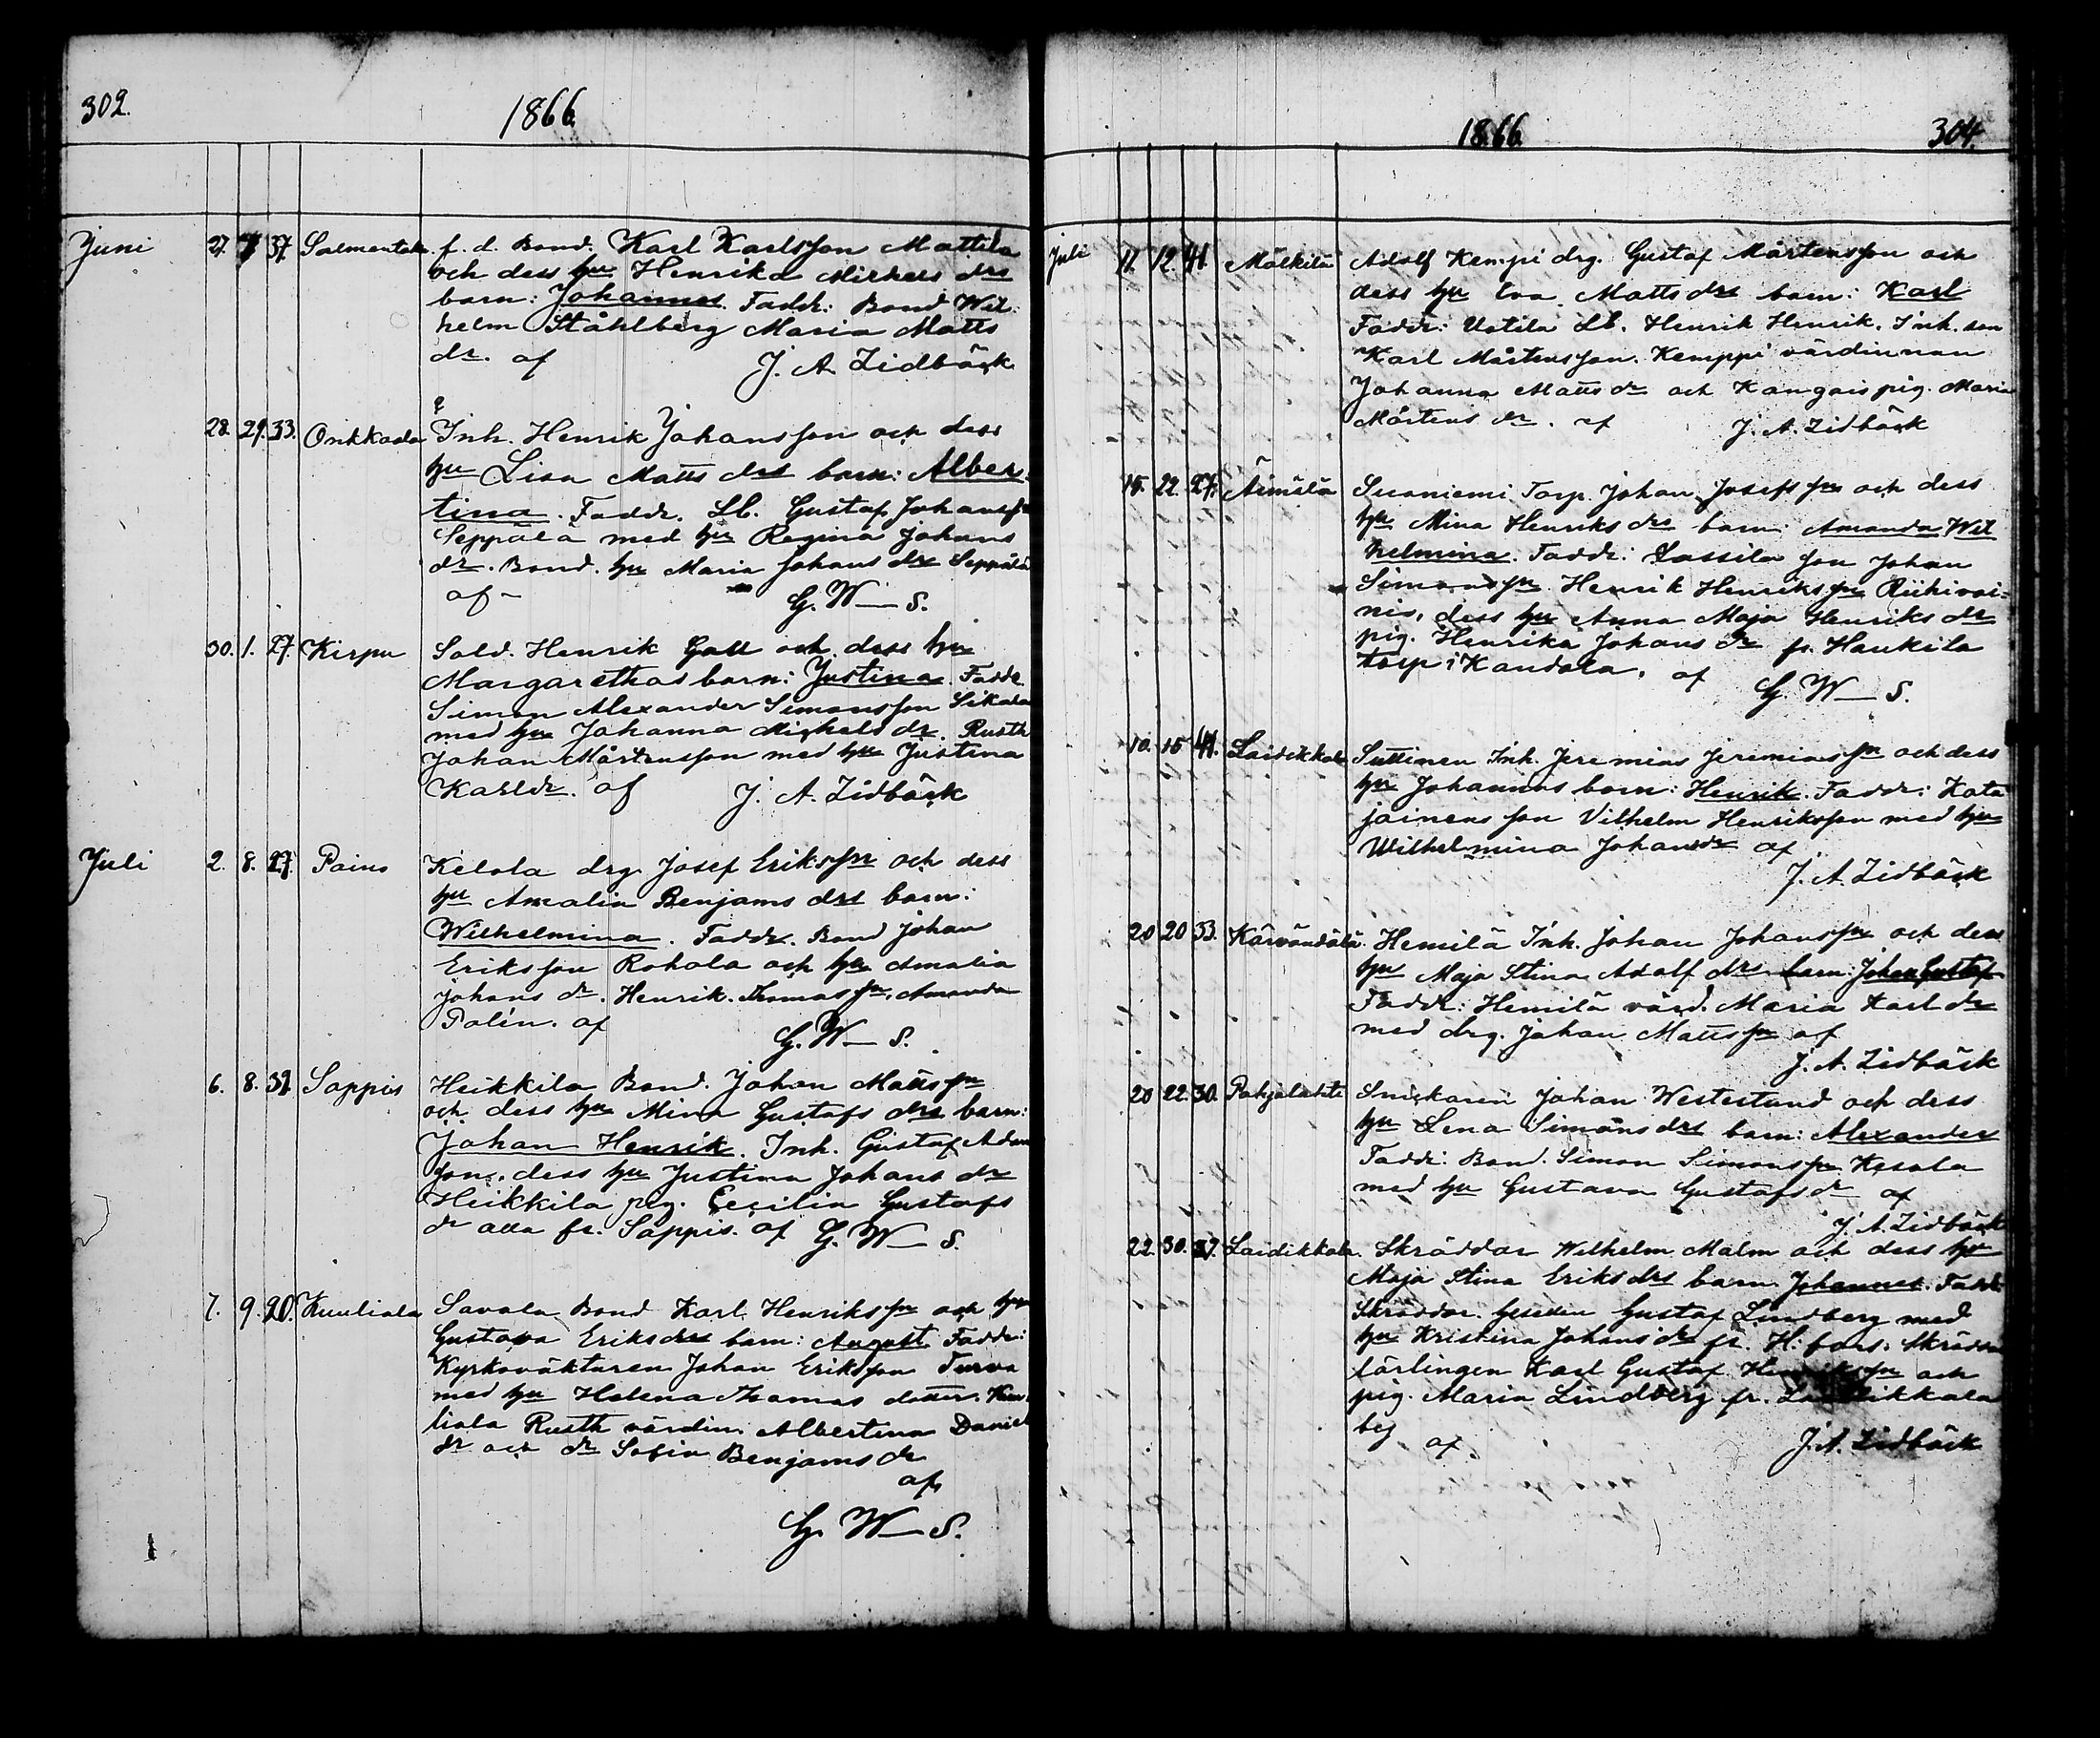 302.
1866.
Juni 27. 7 37. Salmentak. f. d. Bond. Karl Karlsson Mattila
och dess hu Henrika Mickels drs
barn: Johannes. Faddr: Bond. Wil-
helm Ståhlberg Maria Matts
dr. af J. A. Zidbäck
28. 29. 33. Onkkaala Inh. Henrik Johansson och dess
hu Lisa Matts drs barn: Alber-
tina. Faddr. Lb. Gustaf Johansson
Seppälä med hu Regina Johans
dr. Bond. hu Maria Johans dr Seppälä
af G. W— S.
30. 1. 27. Kirpu Sold. Henrik Gall och dess hu
Margarethas barn: Justina. Faddr.
Simon Alexander Simonsson Sikala
med hu Johanna Mickels dr. Rusth
Johan Mårtensson med hu Justina
Karldr. af J. A. Zidbäck
Juli 2. 8. 27. Paino Kelola drg. Josef Eriksson och dess
hu Amalia Benjams drs barn:
Wilhelmina. Faddr. Bond Johan
Eriksson Rohola och hu Amalia
Johans dr. Henrik Thomasson, Amanda
Palin. af
G. W— S.
6. 8. 32. Sappis Heikkila Bond. Johan Mattsson
och dess hu Mina Gustafs drs barn:
Johan Henrik. Inh. Gustaf Adam
son, dess hu Justina Johans dr
Heikkila pig. Cecilia Gustafs
dr alla fr. Sappis. af G. W— S.
7. 9. 20. Kuuliala Savala Bond Karl Henriksson och hu
Gustava Eriks drs barn: August. Faddr:
Kyrkoväktaren Johan Eriksson Turva
med hu Helena Thomas dotter. Kuu-
liala Rusth värdin. Albertina Daniel
dr och dr Sofia Benjams dr
af
G. W— S.
1866.
304.
Juli 11. 12. 41. Mälkilä Adolf Kempi drg. Gustaf Mårtensson och
dess hu Eva Matts drs barn: Karl
Faddr: Uotila Lb. Henrik Henrik. Inh. son
Karl Mårtensson. Kemppi värdinnan
Johanna Matts dr och Kangais pig. Maria
Mårtens dr. af J. A. Zidbäck
15. 22. 27. Äimälä Suoniemi Torp. Johan Josefsson och dess
hu Mina Henriks drs barn: Amanda Wil
helmina. Faddr: Lassila son Johan
Simonsson. Henrik Henriksson Riihivai-
nio, dess hu Anna Maja Henriks dr
pig. Henrika Johans dr fr. Haukila
torp i Kandola. af G. W— S.
10. 15 41. Laidikkala Suttinen Inh. Jeremias Jeremiasson och dess
hu Johannas barn: Henrik. Faddr: Kata
jainens son Vilhelm Henriksson med hu
Wilhelmina Johansdr af
J. A. Zidbäck
20 20 33. Kärväntälä. Hemilä Inh. Johan Johansson och dess
hu Maja Stina Adolf drs barn: Johan Gustaf
Faddr: Hemilä värd. Maria Karl dr
med drg. Johan Mattsson af
J. A. Zidbäck
20 22. 30. Pohjalahti Snickaren Johan Westerlund och dess
hu Lena Simons drs barn: Alexander
Faddr: Bond. Simon Simonsson Kesala
med hu Gustava Gustafs dr af
J. A. Zidbäck
22. 30. 27. Laidikkala. Skräddar Wilhelm Malm och dess hu
Maja Stina Eriks drs barn Johannes. Faddr
Skräddar Gesellen Gustaf Lindberg med
hu Kristina Johans dr fr. H:fors. Skräddar
lärlingen Karl Gustaf Henriksson och
pig. Maria Lindberg fr. Laidikkala
by af J. A. Zidbäck